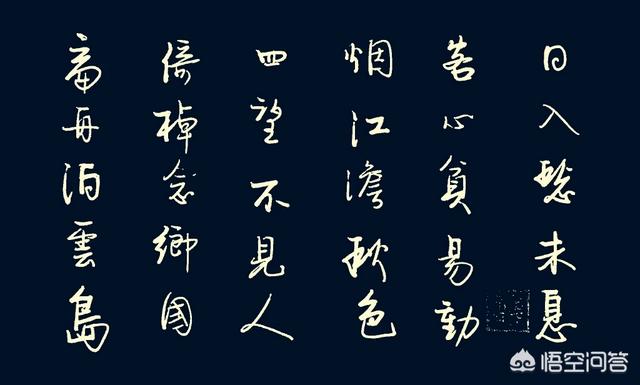 扁舟泊雲島
倚棹念鄉國
四望不見人
烟江澹秋色
客心貧易動
日入愁未息
悟空问答